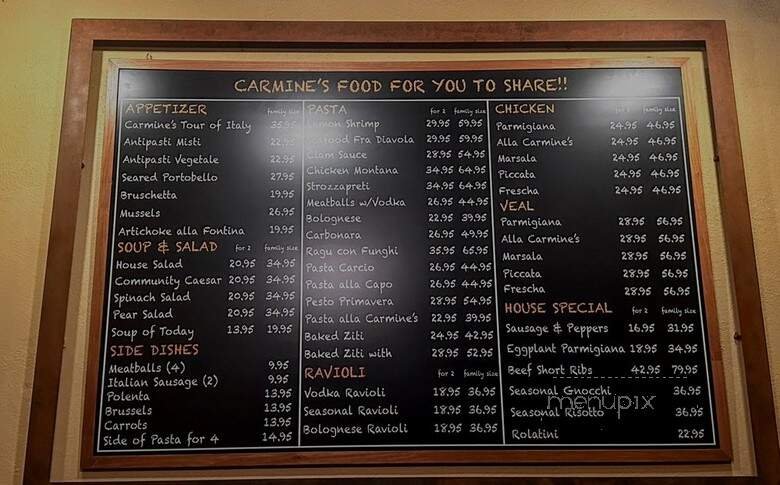 CARMINE'S FOOD FOR YOU TO SHARE!!
APPETIZER family size
Carmine's Tour of Italy 35.95
Antipasti Misti 22.95
Antipasti Vegetale 22.95
Seared Portobello 27.95
Bruschetta 19.95
Mussels 26.95
Artichoke alla Fontina 19.95
SOUP & SALAD for 2 family size
House Salad 20.95 34.95
Community Caesar 20.95 34.95
Spinach Salad 20.95 34.95
Pear Salad 20.95 34.95
Soup of Today 13.95 19.95
SIDE DISHES
Meatballs (4) 9.95
Italian Sausage (2) 9.95
Polenta 13.95
Brussels 13.95
Carrots 13.95
Side of Pasta for 4 14.95
PASTA for 2 family size
Lemon Shrimp 29.95 59.95
Seafood Fra Diavola 29.95 59.95
Clam Sauce 28.95 54.95
Chicken Montana 34.95 64.95
Strozzapreti 34.95 64.95
Meatballs w/Vodka 26.95 44.95
Bolognese 22.95 39.95
Carbonara 26.95 49.95
Ragu con Funghi 35.95 65.95
Pasta Carcio 26.95 44.95
Pasta alla Capo 26.95 44.95
Pesto Primavera 28.95 54.95
Pasta alla Carmine's 22.95 39.95
Baked Ziti 24.95 42.95
Baked Ziti with 28.95 52.95
RAVIOLI for 2 family size
Vodka Ravioli 18.95 36.95
Seasonal Ravioli 18.95 36.95
Bolognese Ravioli 18.95 36.95
CHICKEN for 2 family size
Parmigiana 24.95 46.95
Alla Carmine's 24.95 46.95
Marsala 24.95 46.95
Piccata 24.95 46.95
Frescha 24.95 46.95
VEAL
Parmigiana 28.95 56.95
Alla Carmine's 28.95 56.95
Marsala 28.95 56.95
Piccata 28.95 56.95
Frescha 28.95 56.95
HOUSE SPECIAL for 2 family size
Sausage & Peppers 16.95 31.95
Eggplant Parmigiana 18.95 34.95
Beef Short Ribs 42.95 79.95
Seasonal Gnocchi 36.95
Seasonal Risotto 36.95
Rolatini 22.95
menupix